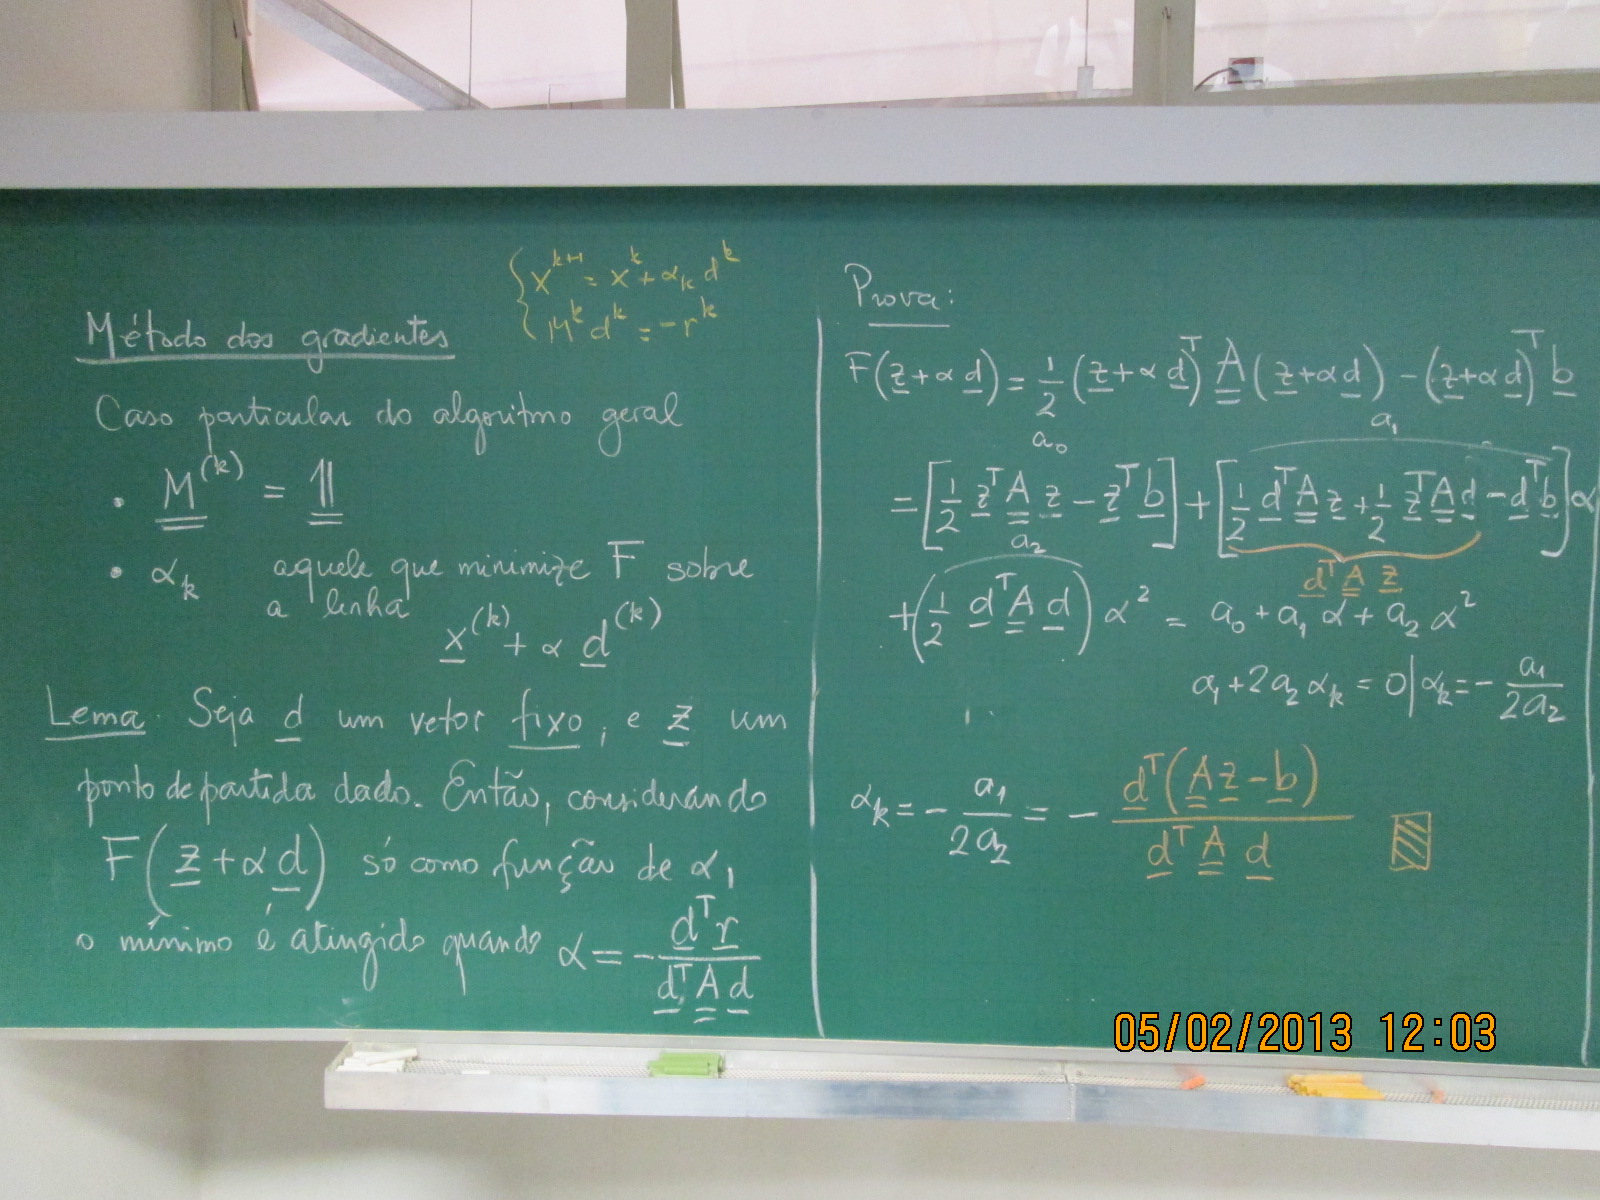 { x^{k+1} = x^k + α_k d^k
{ M^k d^k = -r^k
Método dos gradientes
Caso particular do algoritmo geral
• M^{(k)} = 𝟙
• α_k aquele que minimize F sobre
a linha
x^{(k)} + α d^{(k)}
Lema. Seja d um vetor fixo, e z um
ponto de partida dado. Então, considerando
F(z + α d) só como função de α,
o mínimo é atingido quando α = - d^T r / d^T A d
Prova:
F(z + α d) = 1/2 (z + α d)^T A (z + α d) - (z + α d)^T b
a_0 a_1
= [1/2 z^T A z - z^T b] + [1/2 d^T A z + 1/2 z^T A d - d^T b] α
a_2 d^T A z
+ (1/2 d^T A d) α^2 = a_0 + a_1 α + a_2 α^2
a_1 + 2 a_2 α_k = 0 | α_k = - a_1 / 2a_2
α_k = - a_1 / 2a_2 = - d^T (A z - b) / d^T A d
05/02/2013 12:03